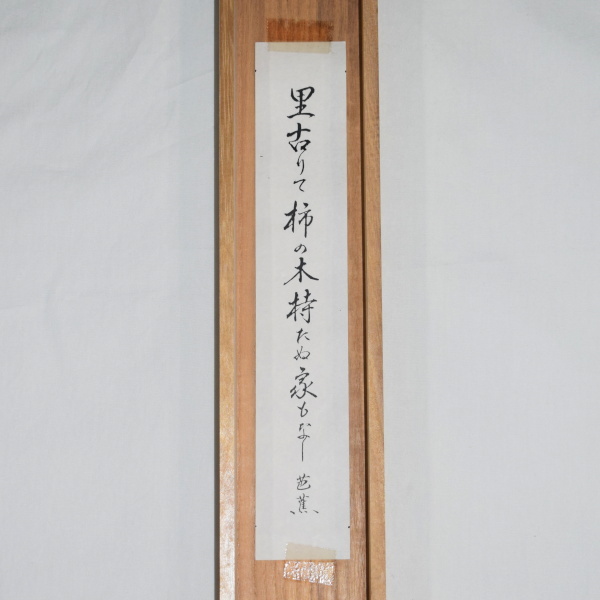 里古りて柿の木持たぬ家もなし 芭蕉